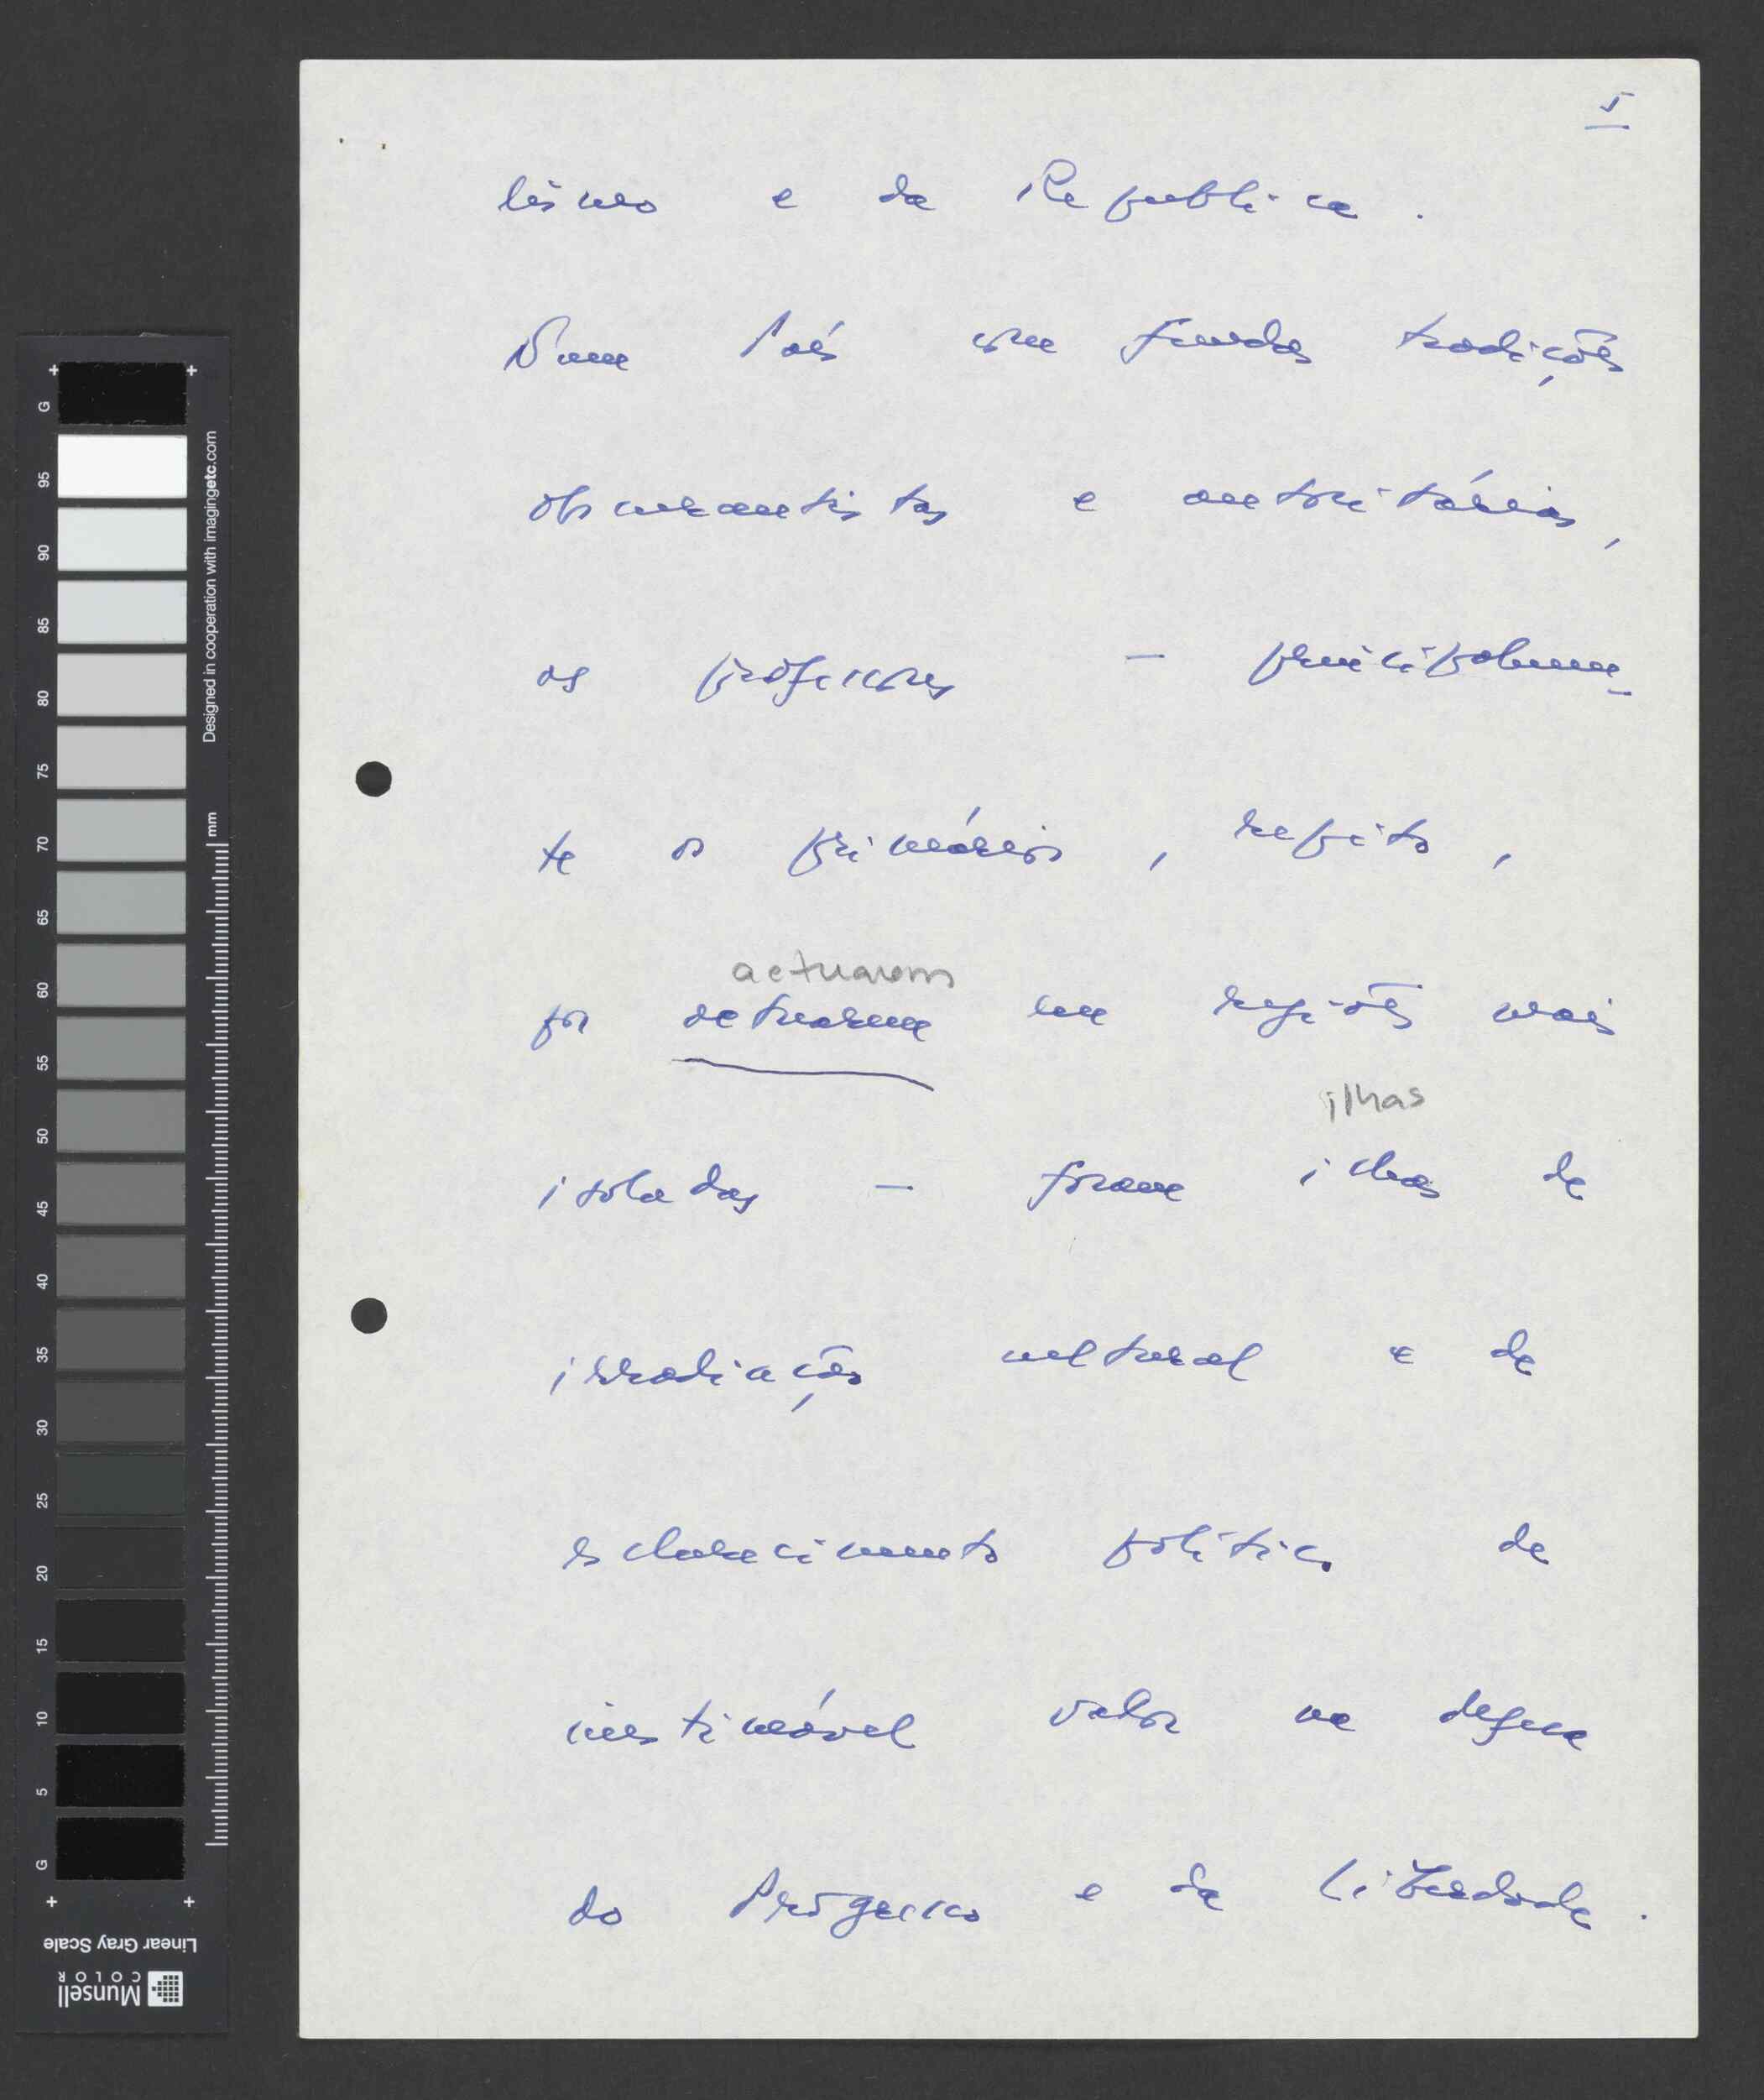 5
lismo e da Republica.
Num País com fundas tradições
obscurantistas e autoritárias,
os professores – principalmen-
te os primários, repito,
actuarem
por actuarem em regiões mais
ilhas
isoladas – foram ilhas de
irradiação cultural e de
esclarecimento político de
inestimável valor na defesa
do Progresso e da Liberdade.
G
95
90
85
80
75
70
65
60
55
50
45
40
35
30
25
20
15
10
5
G
Designed in cooperation with imagingetc.com
mm
Linear Gray Scale
Munsell
COLOR